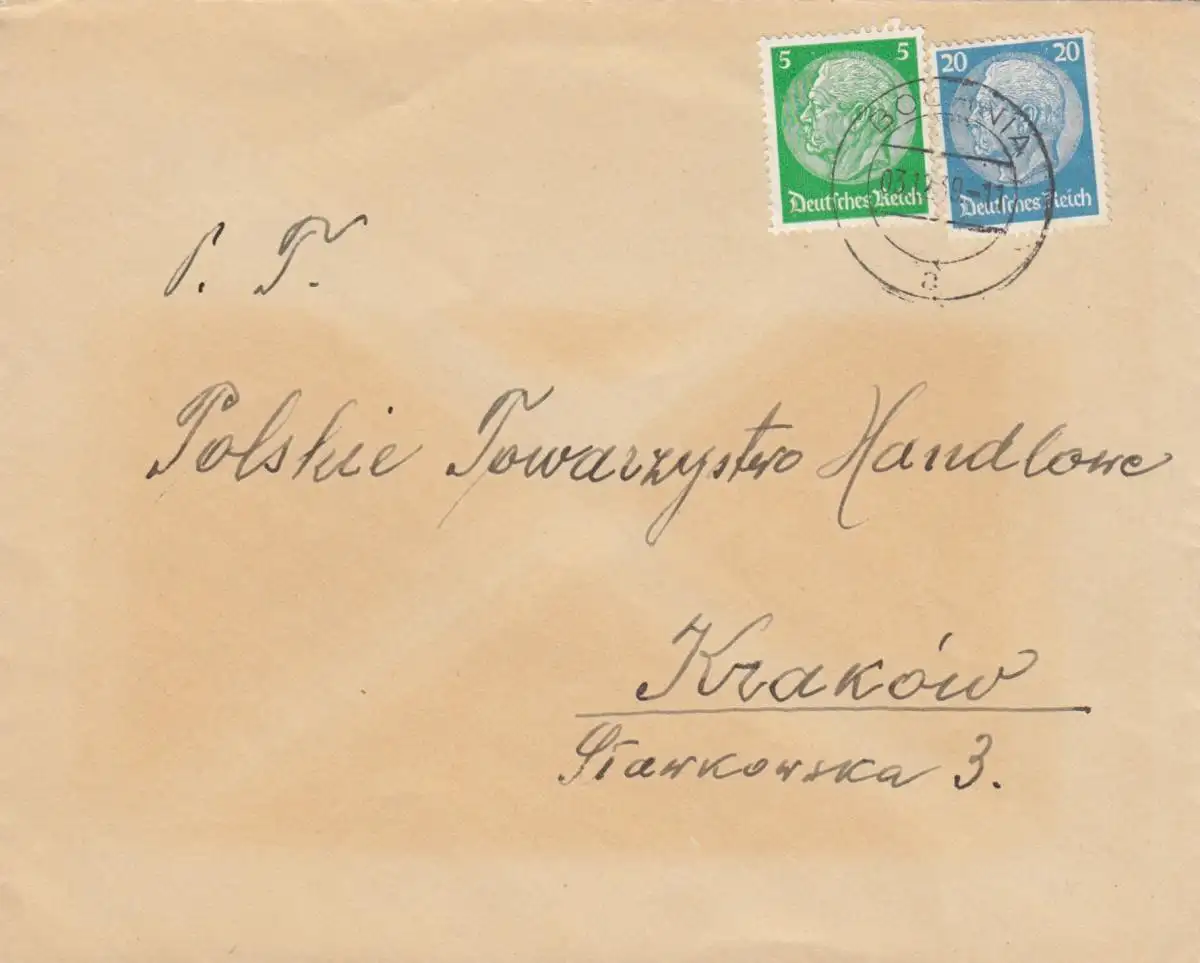 5 5
Deutsches Reich
20 20
Deutsches Reich
BOCHNIA
a
P. T.
Polskie Towarzystwo Handlowe
Kraków
Sławkowska 3.